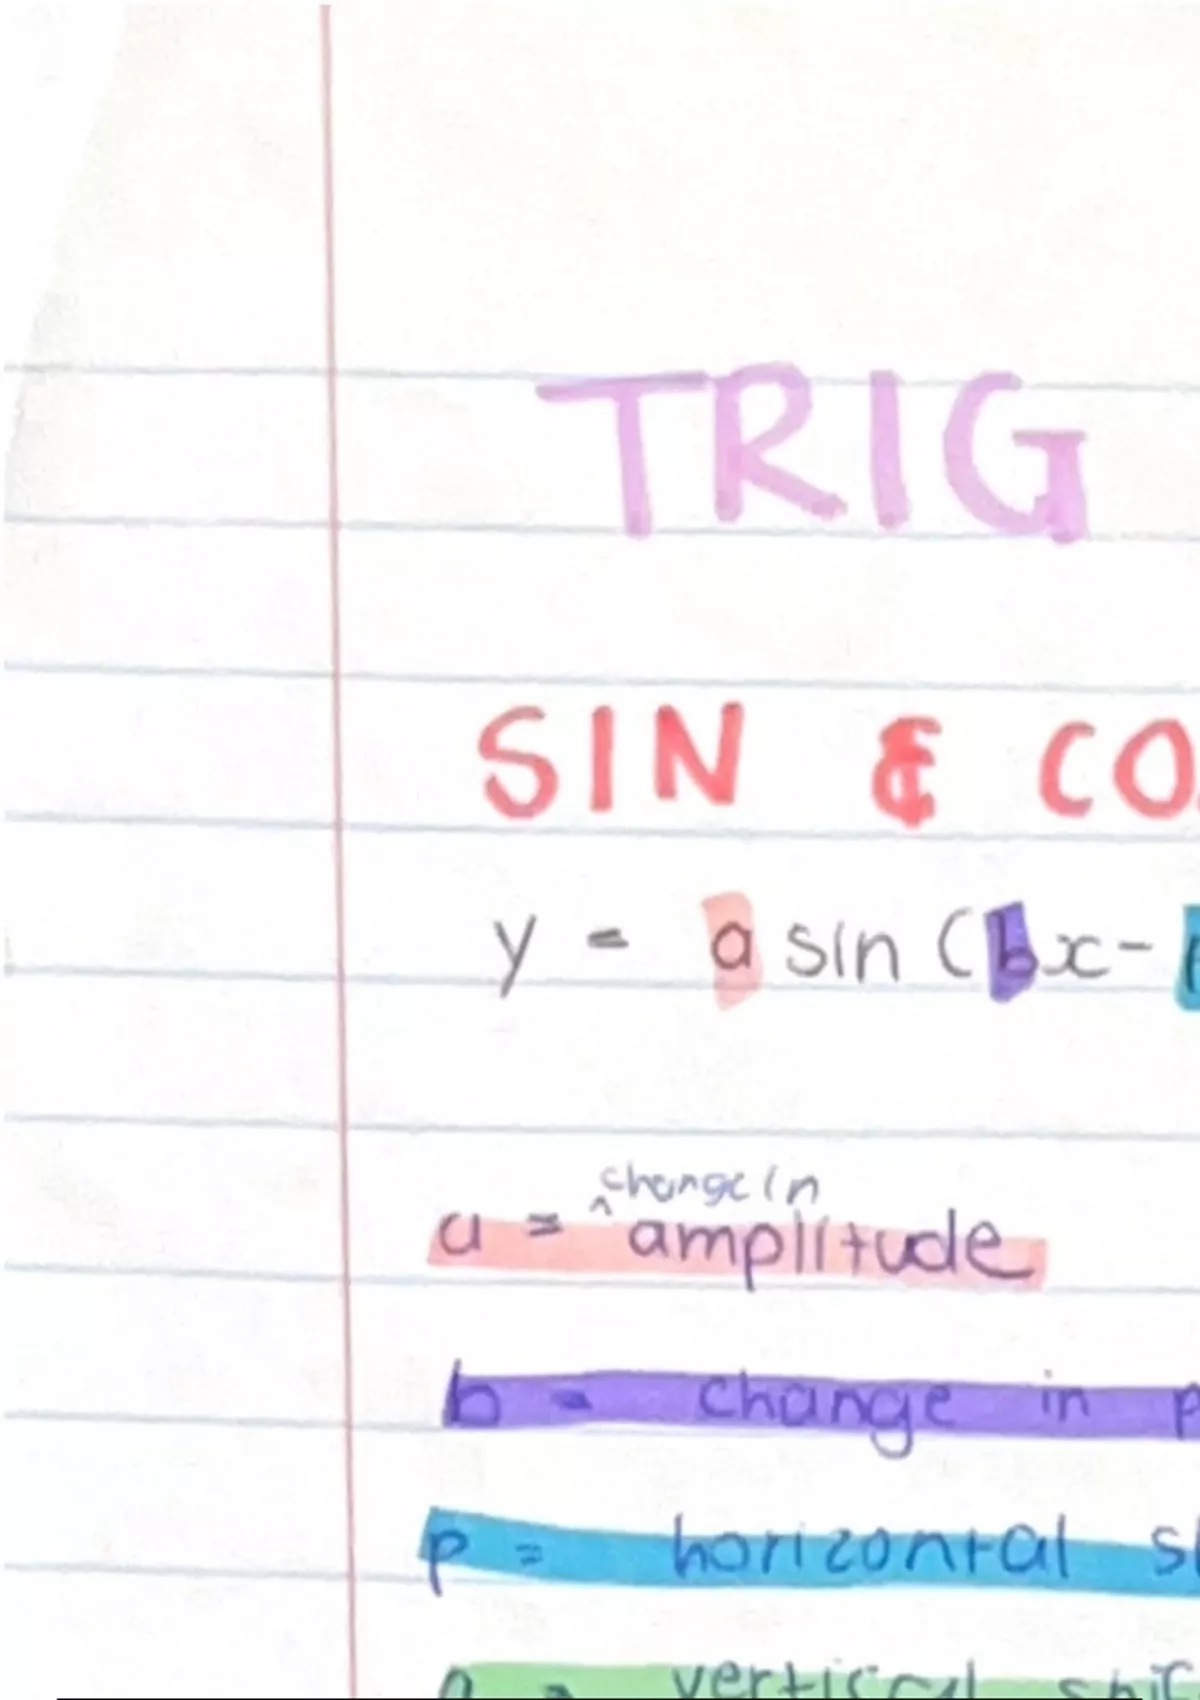 TRIG
SIN & CO
y = a sin (bx -
change in
a = ^ amplitude
b = change in p
p = horizontal s
vertical shif